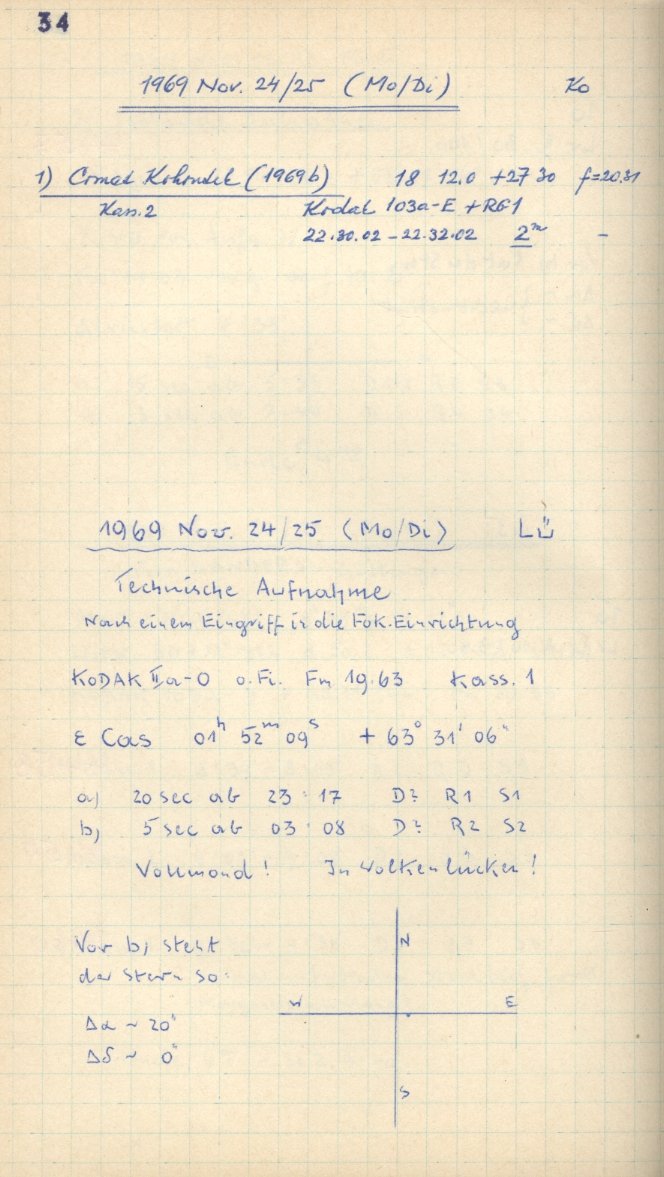 34
1969 Nov. 24/25 (Mo/Di) Ko
1) Comet Kohoutek (1969b) 18 12.0 +27 30 f=20.31
Kass. 2 Kodak 103a-E + RG1
22.30.02 – 22.32.02 2ᵐ –
1969 Nov. 24/25 (Mo/Di) Lü
Technische Aufnahme
Nach einem Eingriff in die Fok. Einrichtung
KODAK IIa-O o.Fi. Fm 19.63 Kass. 1
ε Cas 01ʰ 52ᵐ 09ˢ + 63° 31' 06"
a) 20 sec ab 23:17 D? R1 S1
b) 5 sec ab 03:08 D? R2 S2
Vollmond! In Wolkenlücken!
Vor b) steht
der Stern so:
N
W E
Δα ~ 20"
Δδ ~ 0"
S